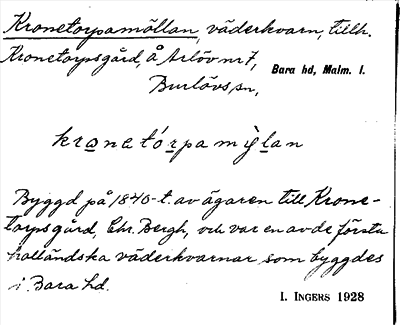 Kronetorpamöllan, väderkvarn, tillh.
Kronetorpsgård, å Arlöv nr 7,
Bara hd, Malm. l.
Burlövs sn,
kronetórpamỳlan
Byggd på 1840-t. av ägaren till Krone-
torpsgård, Chr. Bergh, och var en av de första
holländska väderkvarnar som byggdes
i Bara hd.
I. INGERS 1928